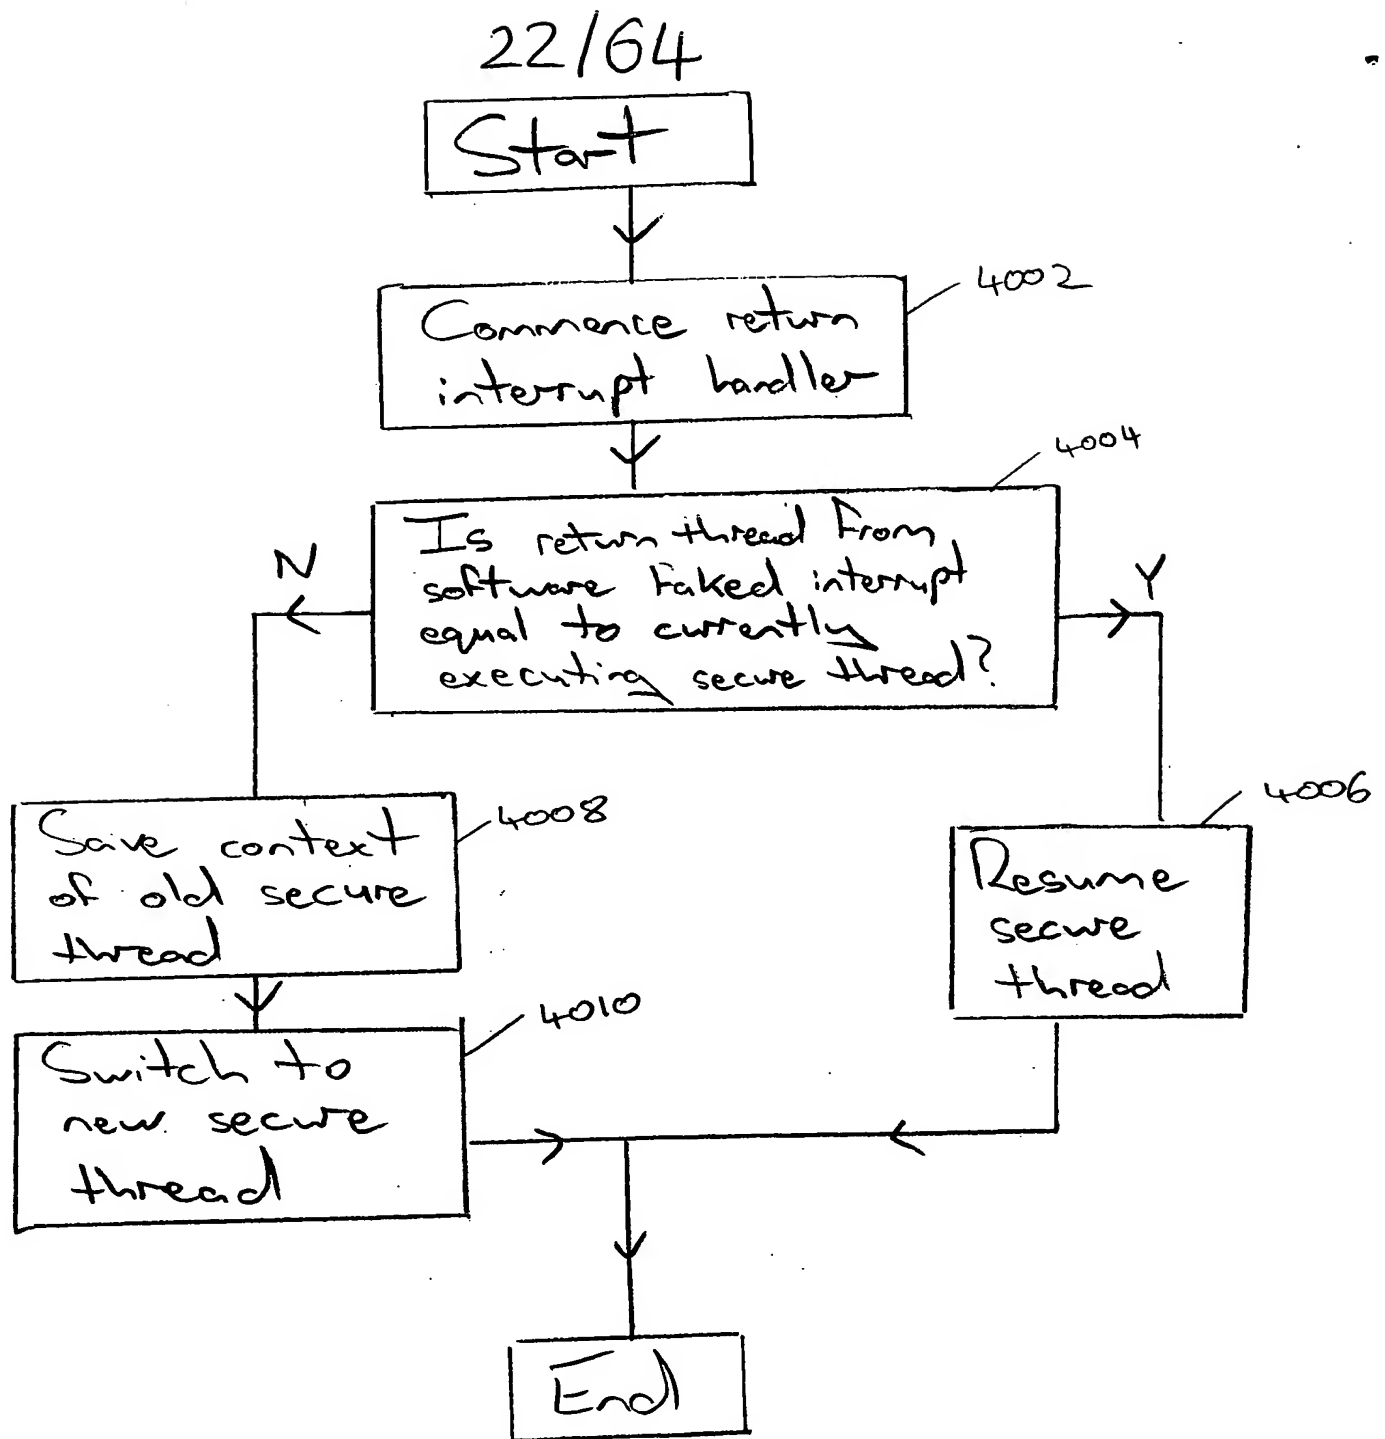 22/64
Start
Commence return
interrupt handler
4002
4004
Is return thread from
software faked interrupt
equal to currently
executing secure thread?
N
Y
4008
Save context
of old secure
thread
4006
Resume
secure
thread
4010
Switch to
new secure
thread
End